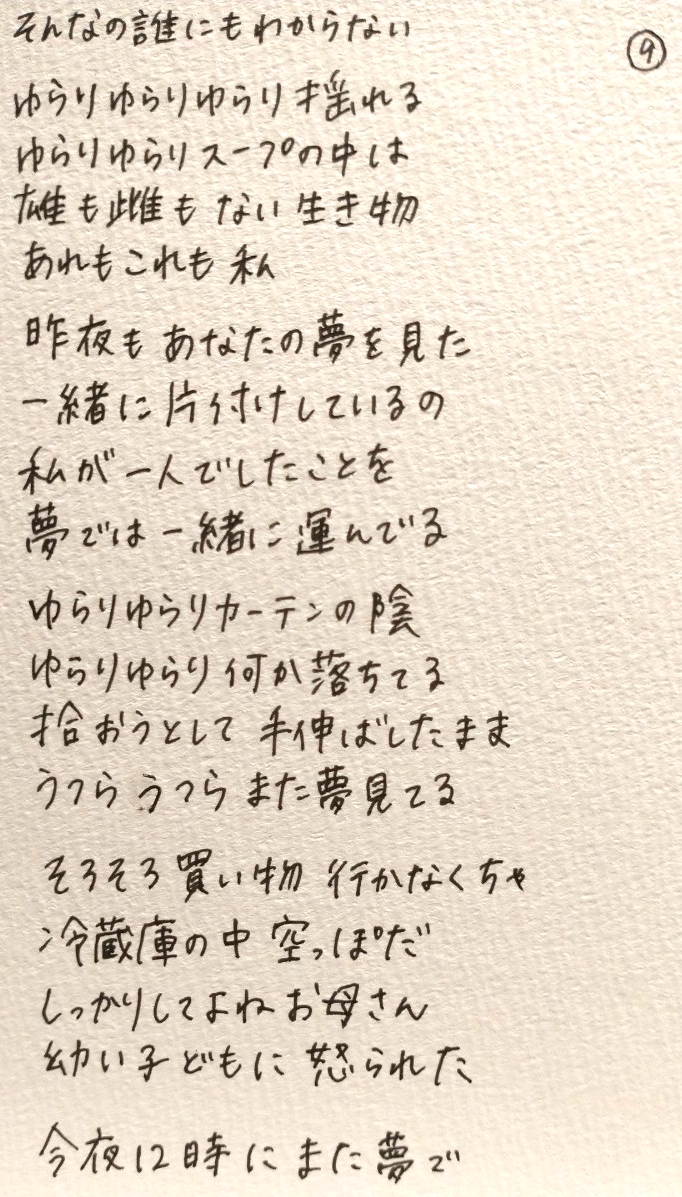 そんなの誰にもわからない
⑨
ゆらりゆらりゆらり揺れる
ゆらりゆらりスープの中は
雄も雌もない生き物
あれもこれも私
昨夜もあなたの夢を見た
一緒に片付けしているの
私が一人でしたことを
夢では一緒に運んでる
ゆらりゆらりカーテンの陰
ゆらりゆらり何か落ちてる
拾おうとして手伸ばしたまま
うつらうつらまた夢見てる
そろそろ買い物行かなくちゃ
冷蔵庫の中空っぽだ
しっかりしてよねお母さん
幼い子どもに怒られた
今夜12時にまた夢で